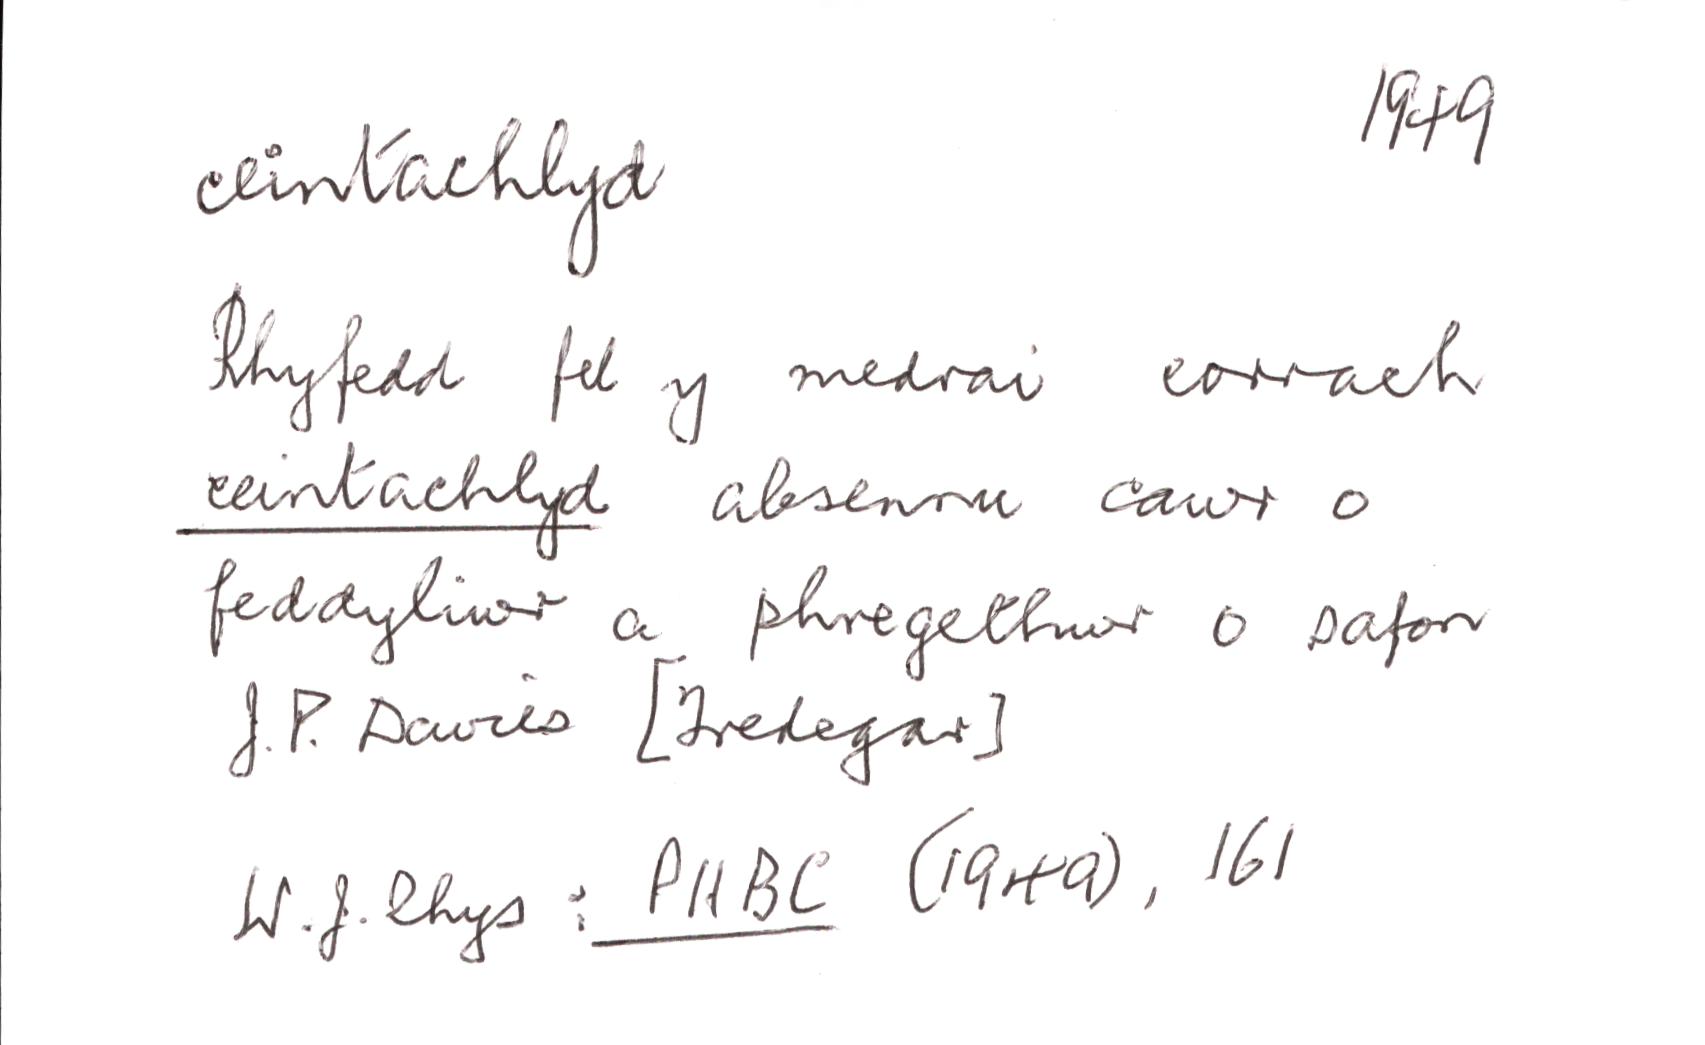 1949
ceintachlyd
Rhyfedd fel y medrai corrach
ceintachlyd absennu cawr o
feddyliwr a phregethwr o safon
J.P. Davies [Tredegar]
W.J. Rhys : PHBC (1949), 161